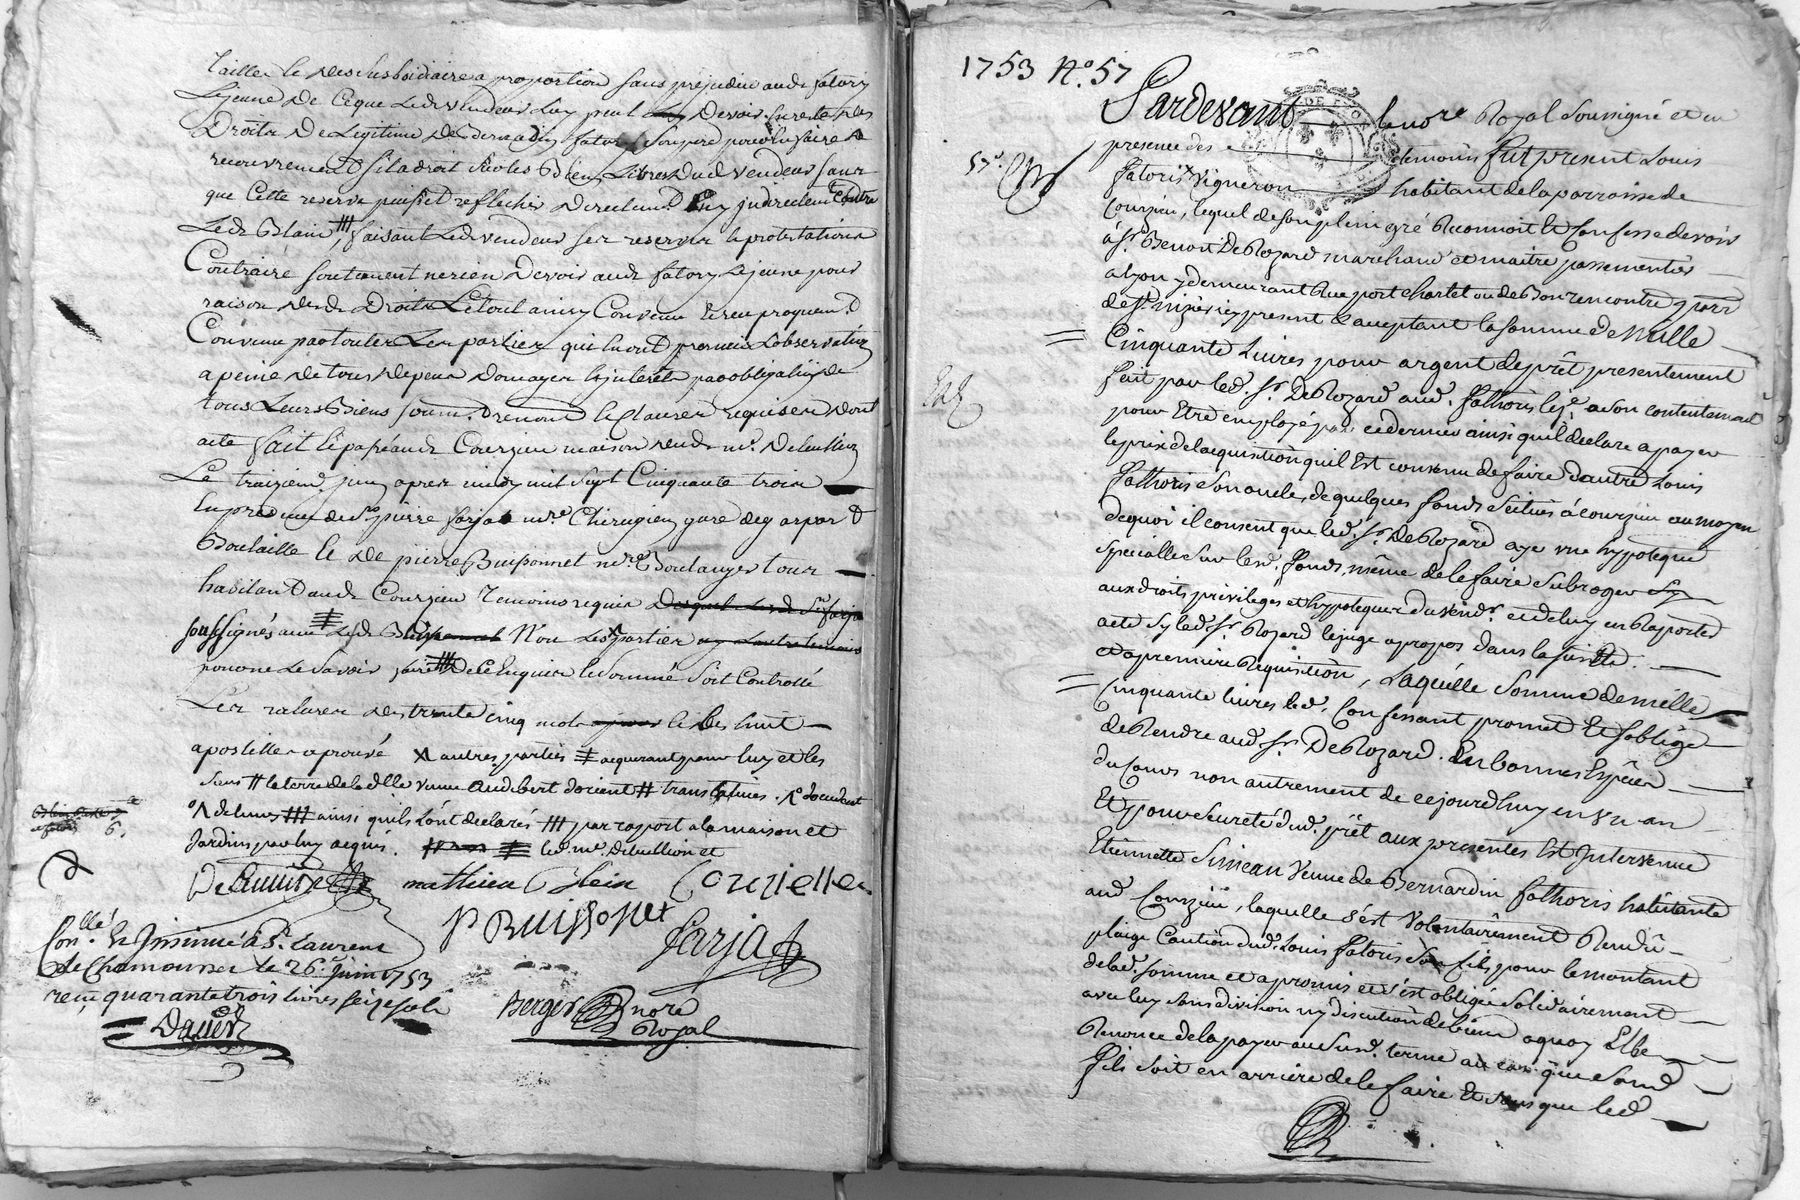 taille le des subsidiaire a proportion sans prejudice aud. fatory
Lejeune De Ceque Led. vendeur Luy peut Devoir sur reste des
Droits De Legitime De Bernardin fatory Son pere pour en faire le
recouvrement sil a droit sur les Biens Libres Dud. vendeur sans
que Cette reserve puisse reflechir Directem.t Ny indirectem.t Contre
Led. Blain, faisant Led. vendeur ses reserves et protestations
Contraire soutenant ne rien Devoir aud. fatory Lejeune pour
raison desd. Droits Le tout ainsy Convenu et reciproquem.t
Convenu par toutes Les parties qui en ont promis L'observation
a peine de tous depens Domages interets par obligation de
tous Leurs Biens soum.on renon.on et Clauses requises Dont
acte fait et passé aud. Courzieu maison dud. mr. Debullion
Le traizieme juin apres midy mil sept Cinquante trois
En presence de sr. pierre farjat me. Chirugien
Boutaille et De pierre Buissonnet me. Boulanger tous
habitant aud. Courzieu Temoins requis
soussignés avec Led. Non Les partier
pour ne Le savoir De Ce Enquis et Sommé Soit Controllé
Les ratures des trente cinq mots et Les huit
apostilles aprouvé autres parties acquerant pour luy et les
siens la terre de lad.lle veuve Audibert dorient
de luns ainsi quils l'ont declarés par raport a la maison et
Jardins par luy acquis. led. mr. Debullion et
mathieu Blein
P Buissonet
farjat
Con.llé Et Insinué a St. Laurent
de Chamousset le 26.e Juin 1753
reçu quarante trois livres seize sols
Berger nore
Royal
1753 N.o 57
Pardevant le nore. Royal Soussigné et en
57.e
presence des temoins fut present Louis
fatoris Vigneron habitant de la parroisse de
Courzieu, lequel de son plein gré Reconnoit Et Confesse devoir
à Sr. Benoit De Rozard marchand et maitre passementier
a Lyon y demeurant Rue port charlet ou de Bon rencontre, parr.
de St. nizier icy present et acceptant la somme de Mille
Cinquante Livres pour argent de prêt presentement
fait par led. Sr. De Rozard aud. fathoris a son contentement
pour Etre employé par ce dernier ainsi quil declare a payer
le prix de lacquisition quil Est convenu de faire dautre Louis
fathoris son oncle, de quelques fonds scitués à courzieu au moyen
dequoi il consent que led. Sr. De Rozard aye une hypoteque
specialle sur lesd. fonds, même de le faire subroger
aux droits privileges et hypoteques du vend.r en de luy en Raporter
acte sy led. Sr. Rozard le juge a propos dans la suitte
a sa premiere Requisition, Laquélle Somme de mille
Cinquante livres led. Confessant promet Et soblige
de Rendre aud. Sr. De Rozard. En bonnes Espéces
du Cours non autrement de ce jourdhuy en Un an
Et pour seureté dud. prêt aux presentes Est Intervenue
Etiennette Simean Veuve de Bernardin fathoris habitante
aud. Courzieu, laquelle s'est Volontairement Rendüe
plaige Caution dud. Louis fatoris Son fils, pour le montant
de lad. somme et a promis et s'est obligée solidairement
avec luy sans division ny discution de biens a quoy Elle
Renonce de la payer au susd. terme au cas que Sond.
fils soit en arriere de le faire Et sans que led.